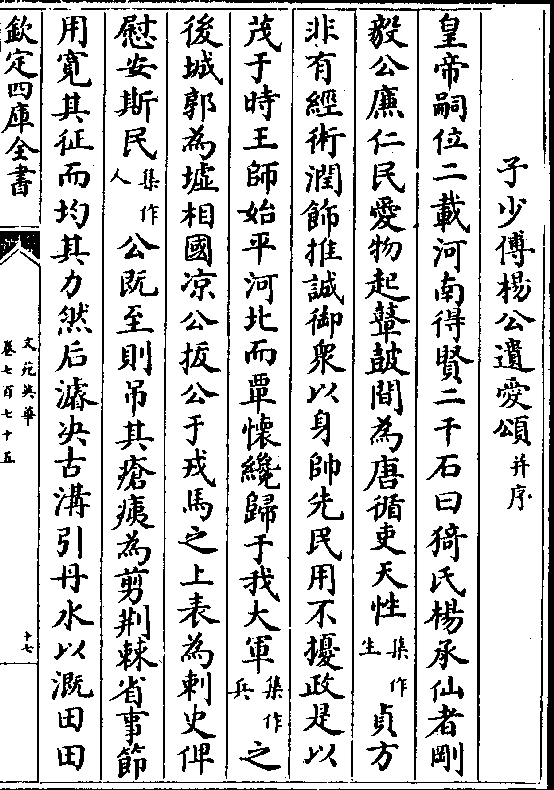 子少傅楊公遺愛頌并序
皇帝嗣位二載河南得賢二千石曰猗氏楊承仙者剛
毅公廉仁民愛物起鼙鼓間為唐循吏天性集作生貞方
非有經術潤飾推誠御衆以身帥先民用不擾政是以
茂于時王師始平河北而覃懷纔歸于我大軍集作兵之
後城郭為墟相國凉公拔公于戎馬之上表為刺史俾
慰安斯民集作人公既至則吊其瘡痍為剪荆棘省事節
用寛其征而均其力然后濬决古溝引丹水以溉田田
欽定四庫全書
文苑英華
卷七百七十五
十七